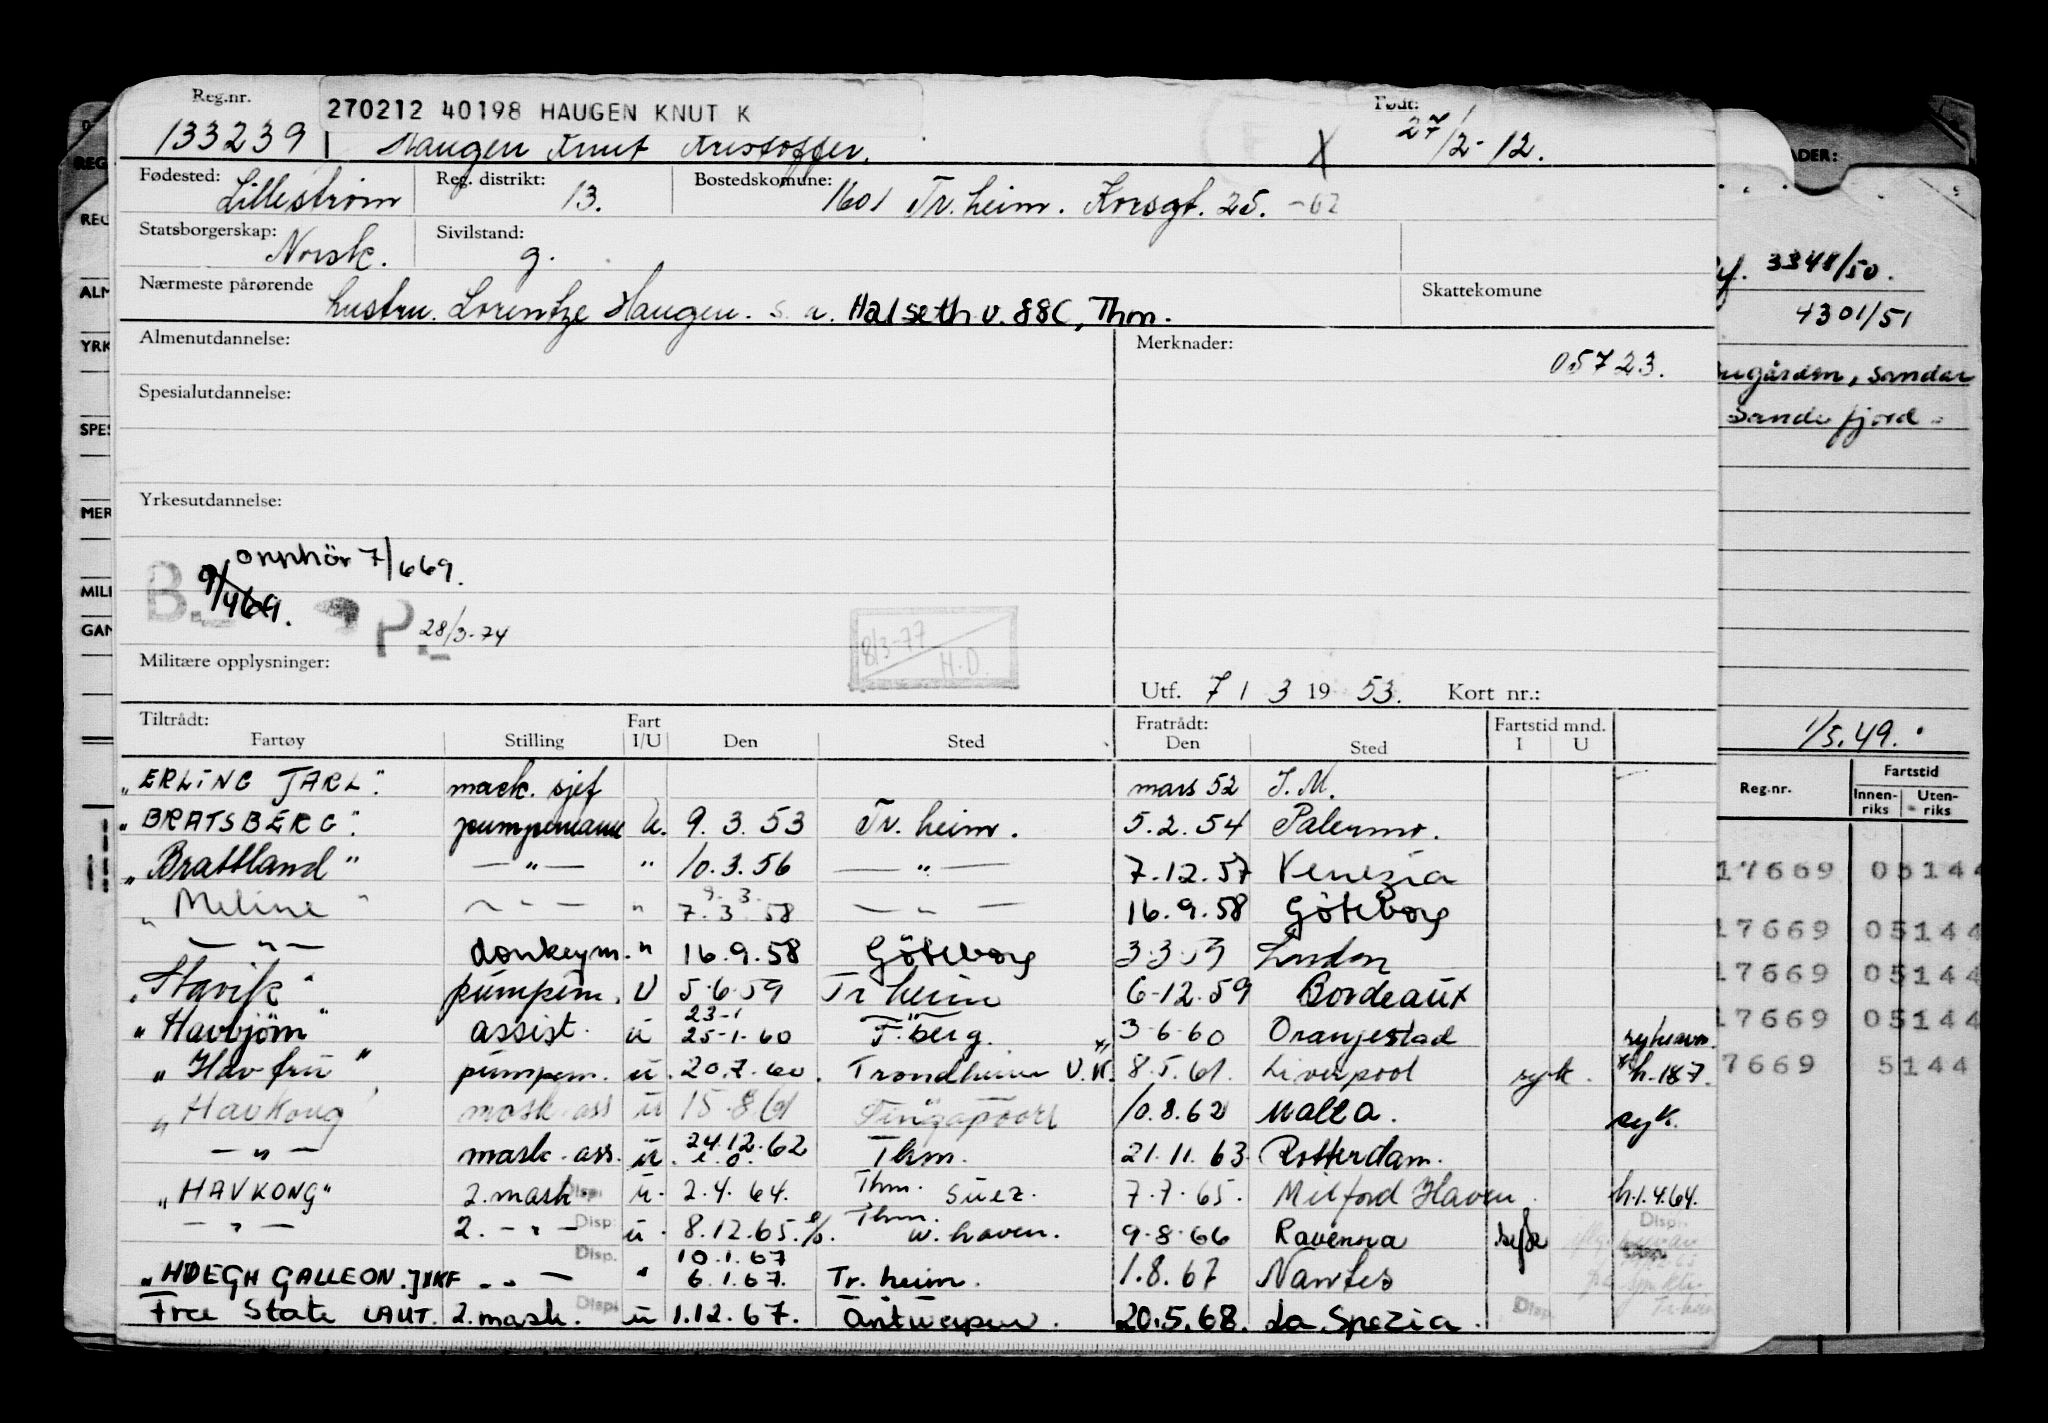 Reg.nr. 270212 40198 HAUGEN KNUT K Født:
133239 Haugen Knut Kristoffer. X 27/2-12.
Fødested: Lilleström Reg. distrikt: 13. Bostedskomune: 1601 Tr.heim. Korsgt. 25. -62
Statsborgerskap: Norsk. Sivilstand: g.
Nærmeste pårørende hustru. Lorentze Haugen. s. a. Halseth v. 88C, Thm. Skattekomune
Almenutdannelse: Merknader: 05723.
Spesialutdannelse:
Yrkesutdannelse:
opphör 7/669.
B. 9/469. P. 28/3-74
8/3-77 H.O.
Militære opplysninger:
Utf. 7 / 3 19 53. Kort nr.:
Tiltrådt: Fart Fratrådt: Fartstid mnd.
Fartøy Stilling I/U Den Sted Den Sted I U
"ERLING JARL". mask. sjef mars 52 I.M.
"BRATSBERG". pumpemann U. 9. 3. 53 Tr. heim. 5.2.54 Palermo.
"Brattland" — " — " 10.3.56 — " — 7.12.57 Venezia
9. 3.
"Meline" — " — " 7.3 58 — " — 16.9.58 Göteborg
— " — donkeym. " 16.9.58 Göteborg 3 3 59 London
"Stavik" pumpem. U 5.6.59 Tr heim 6-12.59 Bordeaux
23-1 — " —
"Havbjörn" assist. u 25-1-60 T.berg. x, 3-6-60 Oranjestad
"Havfru" pumpem. u. 20.7.60. Trondheim 8.5.61. Liverpool syk. h.187.
"Havkong" mask.ass u 15.8.61 10.8.62 Malta. syk.
24.12.62
— " — mask.ass. u. Thm. 21.11.63 Rotterdam.
"HAVKONG" 2.mask Disp. u. 2.4.64. Thm. Suez. 7.7.65. Milford Haven. h.1.4.64.
— " — 2. — " — Disp. u. 8.12.65. Thm. w. haven. 9.8.66 Ravenna syk Disp.
Disp. 10.1.67
"HÖEGH GALLEON. JXKF — " — " 6.1.67. Tr. heim. 1.8.67 Nantes
Free State LAUT. 2.mask. Disp. u 1.12.67. Antwerpen. 20.5.68. La Spezia. Disp.
ADER:
3348/50.
4301/51
Sandar
Sandefjord.
1/5.49.
Reg.nr. Fartstid
Innen-riks Uten-riks
17669 05144
17669 05144
17669 05144
17669 05144
7669 5144
REG
REG
ALM
YRK
SPES
MER
MILI
GAN